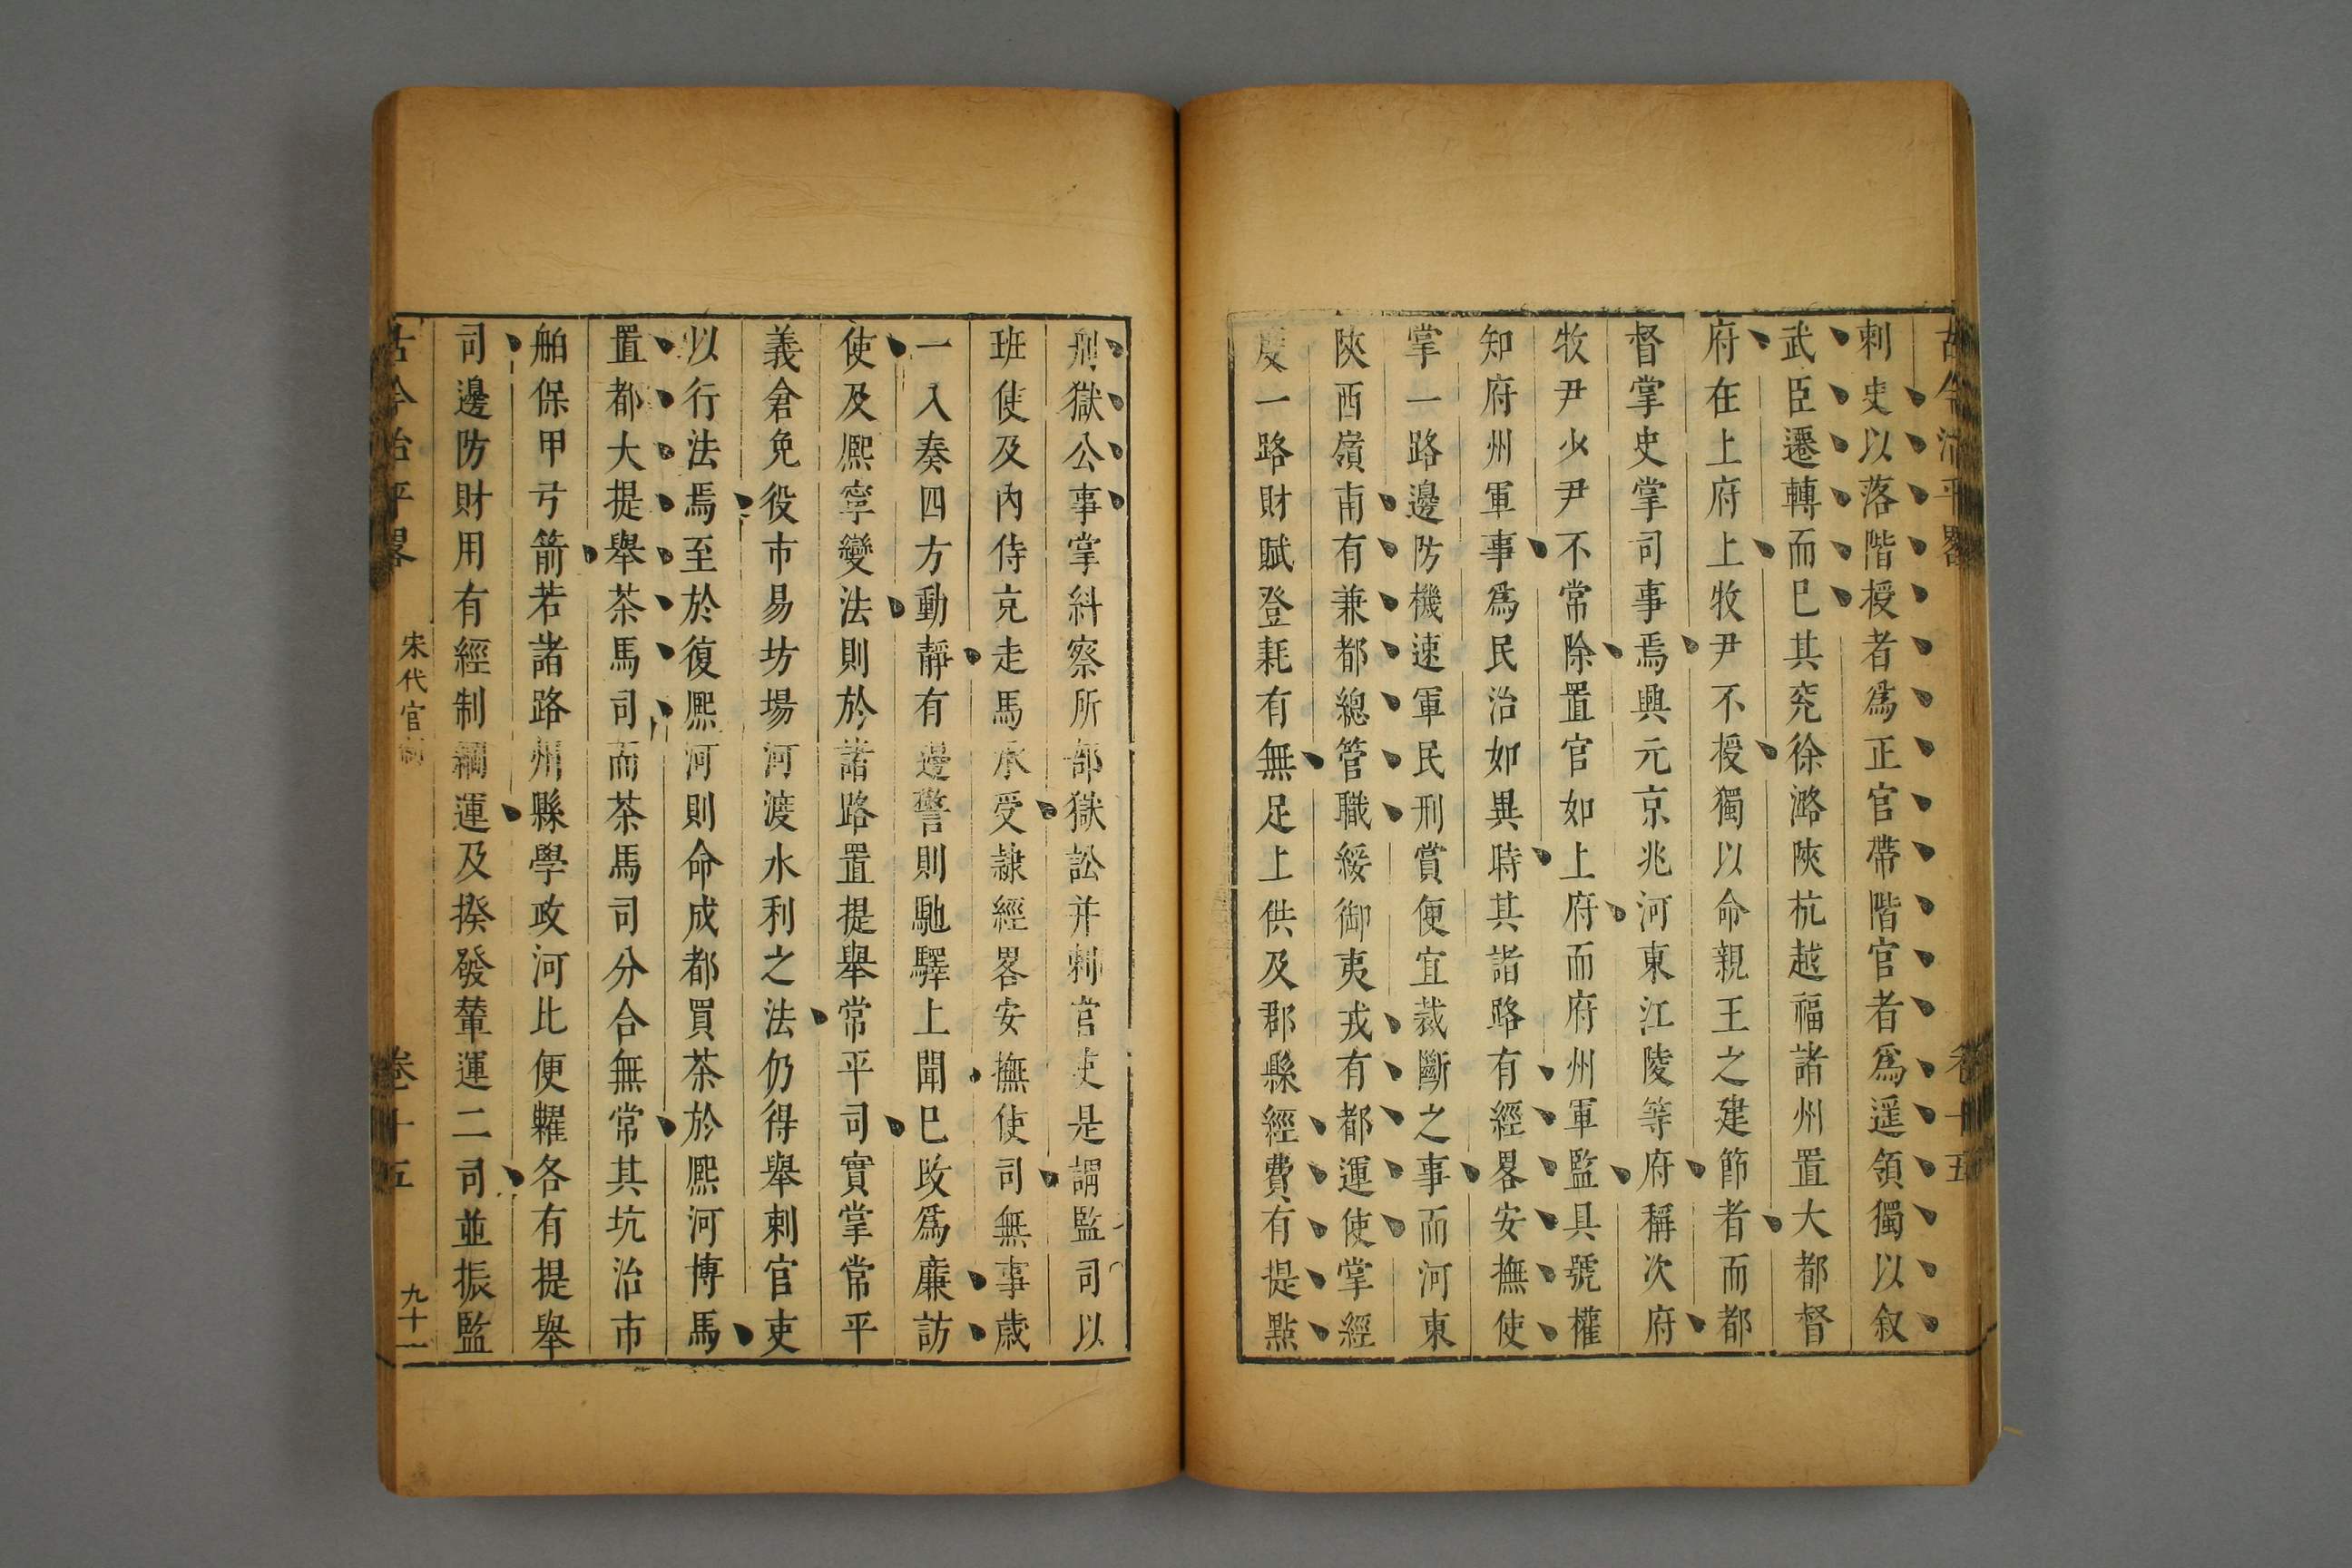 古今治平畧 卷十五
刺史以落階授者爲正官帶階官者爲遥領獨以叙
武臣遷轉而巳其兖徐潞陝杭越福諸州置大都督
府在上府上牧尹不授獨以命親王之建節者而都
督掌史掌司事焉興元京兆河東江陵等府稱次府
牧尹少尹不常除置官如上府而府州軍監具號權
知府州軍事爲民治如異時其諸路有經畧安撫使
掌一路邊防機速軍民刑賞便宜裁斷之事而河東
陝西嶺南有兼都總管職綏御夷戎有都運使掌經
度一路財賦登耗有無足上供及郡縣經費有提點
刑獄公事掌糾察所部獄訟并刺官吏是謂監司以
班使及內侍充走馬承受隷經畧安撫使司無事歲
一入奏四方動靜有邊警則馳驛上聞巳改爲廉訪
使及熈寧變法則於諸路置提舉常平司實掌常平
義倉免役市易坊場河渡水利之法仍得舉刺官吏
以行法焉至於復熈河則命成都買茶於熈河博馬
置都大提舉茶馬司而茶馬司分合無常其坑治市
舶保甲弓箭若諸路州縣學政河比便糴各有提舉
司邊防財用有經制綱運及揆發輦運二司並振監
古今治平畧 宋代官制 卷十五 九十一